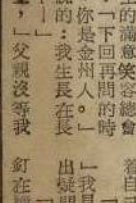 的滿意笑容總會
「下回再問的時
「你是金州人。」
的：我生長在長
，」父親沒等我
着自
「我是
出疑
釘在